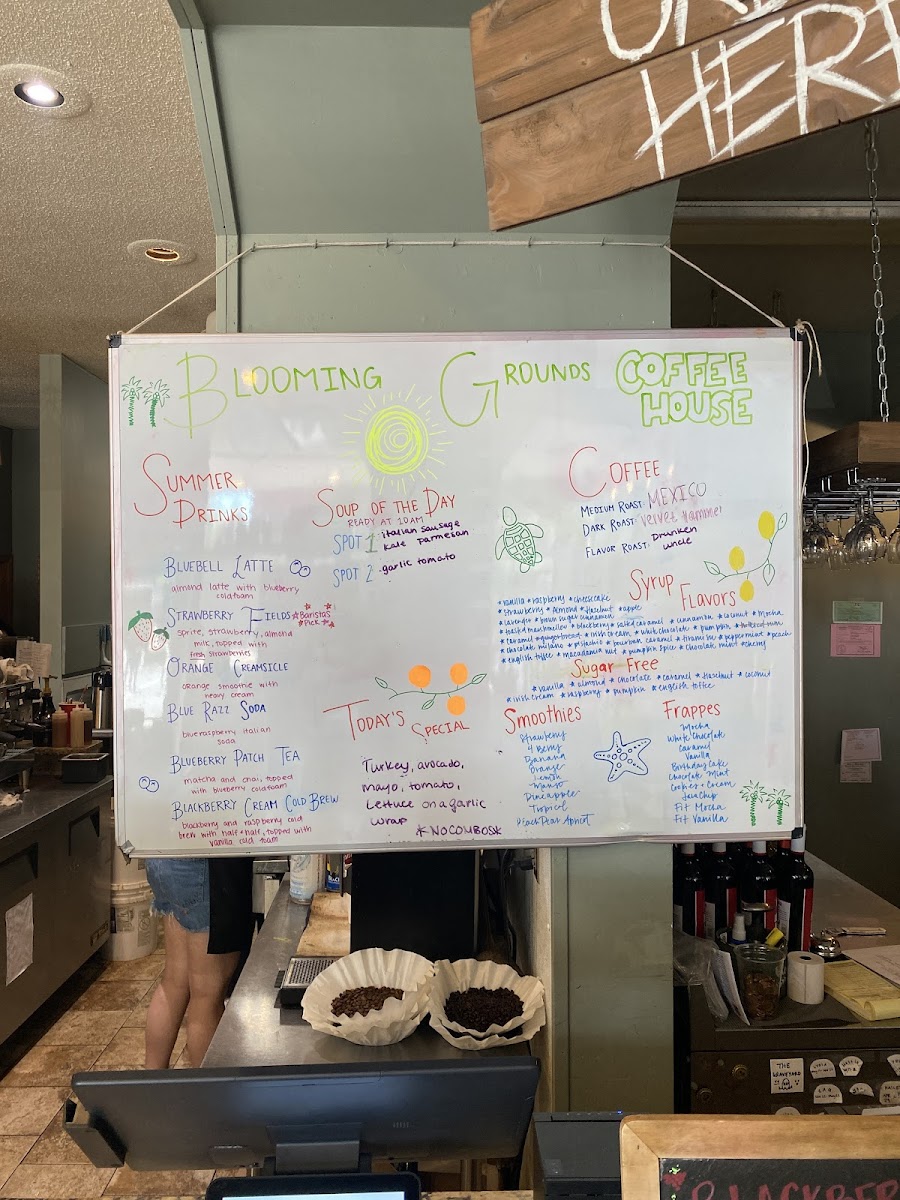 ORD
HERE
BLOOMING GROUNDS COFFEE
HOUSE
SUMMER
DRINKS
BLUEBELL LATTE
almond latte with blueberry
coldfoam
STRAWBERRY FIELDS
*Baristas
Pick*
sprite, strawberry, almond
milk, topped with
fresh strawberries
ORANGE CREAMSICLE
orange smoothie with
heavy cream
BLUE RAZZ SODA
blue raspberry italian
soda
BLUEBERRY PATCH TEA
matcha and chai, topped
with blueberry coldfoam
BLACKBERRY CREAM COLD BREW
blackberry and raspberry cold
brew with half + half, topped with
vanilla cold foam
SOUP OF THE DAY
READY AT 10AM
SPOT 1 italian sausage
kale parmesan
SPOT 2 garlic tomato
TODAY'S
SPECIAL
Turkey, avocado,
mayo, tomato,
Lettuce on a garlic
wrap
*NO COMBOS*
COFFEE
MEDIUM ROAST: MEXICO
DARK ROAST: velvet hammer
FLAVOR ROAST: Drunken
uncle
Syrup
Flavors
*vanilla *raspberry *cheesecake
*strawberry *Almond *Hazelnut *apple
*lavender *brown sugar cinnamon
*toasted marshmallow *blackberry *salted caramel *cinnamon *coconut *Mocha
*caramel *gingerbread *irish cream *white chocolate *pumpkin *buttered rum
*chocolate milano *pistachio *bourbon caramel *tiramisu *peppermint *peach
*english toffee *macadamia nut *pumpkin spice *chocolate mint *cherry
Sugar Free
*vanilla *almond *chocolate *caramel *Hazelnut *coconut
*irish cream *raspberry *pumpkin *english toffee
Smoothies
Strawberry
4 Berry
Banana
Orange
Lemon
Mango
Pineapple
Tropical
Peach Pear Apricot
Frappes
Mocha
White Chocolate
Caramel
Vanilla
Birthday Cake
Chocolate Mint
Cookies + Cream
Java Chip
Fit Mocha
Fit Vanilla
THE
GRAVEYARD
BLACKBER